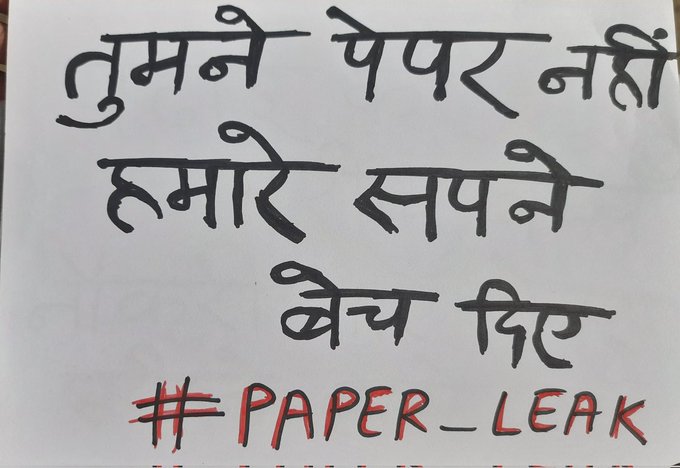 तुमने पेपर नहीं
हमारे सपने
बेच दिए
#PAPER_LEAK